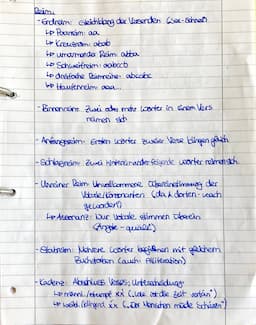 Reim:
- Endreim: Gleichklang der Versenden
↳ Paarreim: aa
↳ Kreuzreim: abab
↳ umarmender Reim: abba
↳ Schweifreim: aabccb
↳ dreifache Reimreihe: abcabc
↳ Haufenreim: aaa...
- Binnenreim: Zwei oder mehr Wörter in einem Vers
reimen sich
- Anfangsreim: Ersten Wörter zweier Verse klingen gleich
- Schlagreim: Zwei hintereinander folgende Wörter reimen sich
- Unreiner Reim: Unvollkommene Übereinstimmung der
Vokale/Konsonanten
↳ Assonanz: Nur Vokale stimmen überein
- Stabreim: Mehrere Wörter beginnen mit gleichem
Buchstaben (auch: Alliteration)
- Kadenz: Abschluss Verses; Unterscheidung:
↳ männl./stumpf
↳ weibl./klingend